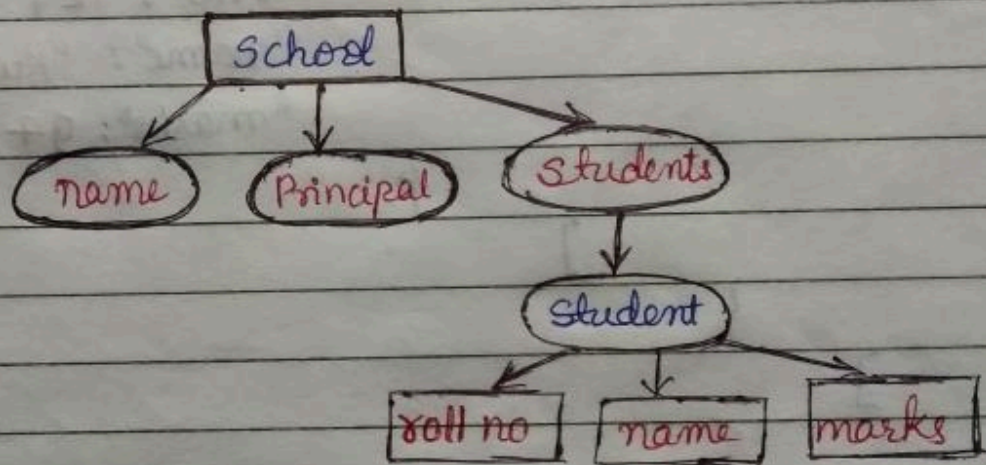 School
name Principal Students
Student
roll no name marks